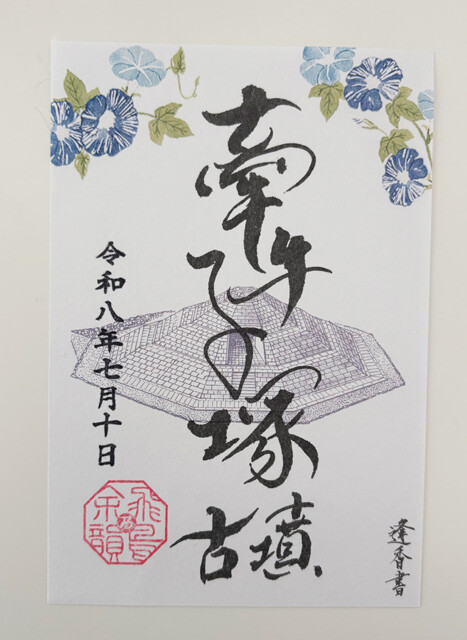 牽牛子塚
古墳
令和八年七月十日
飛鳥
余韻
逢香書